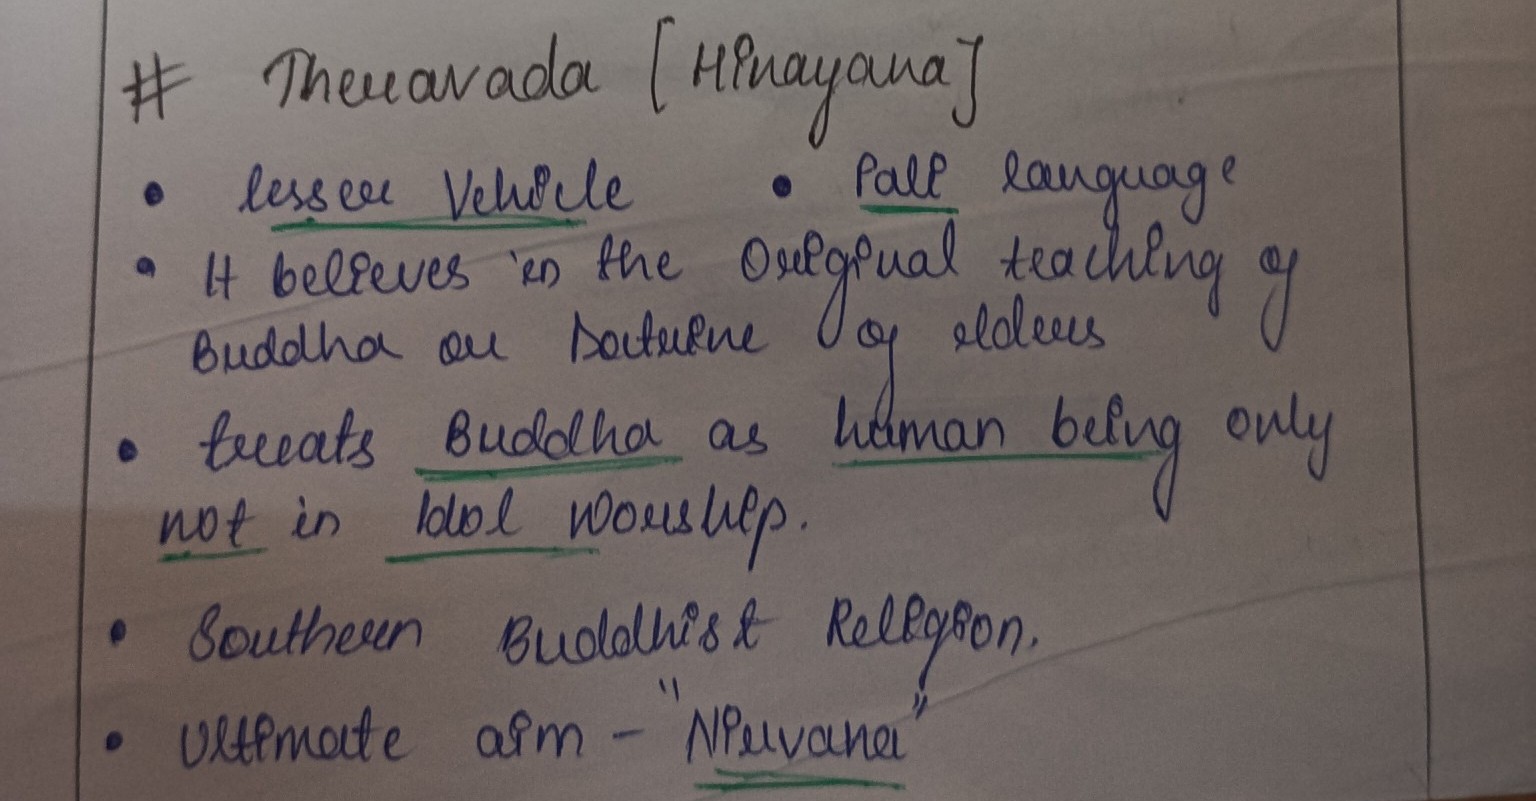 # Theravada [Hinayana]
• lesser Vehicle • Pali language
• It believes in the Original teaching of
Buddha or Doctrine of elders
• treats Buddha as human being only
not in Idol worship.
• Southern Buddhist Religion.
• Ultimate aim - "Nirvana"